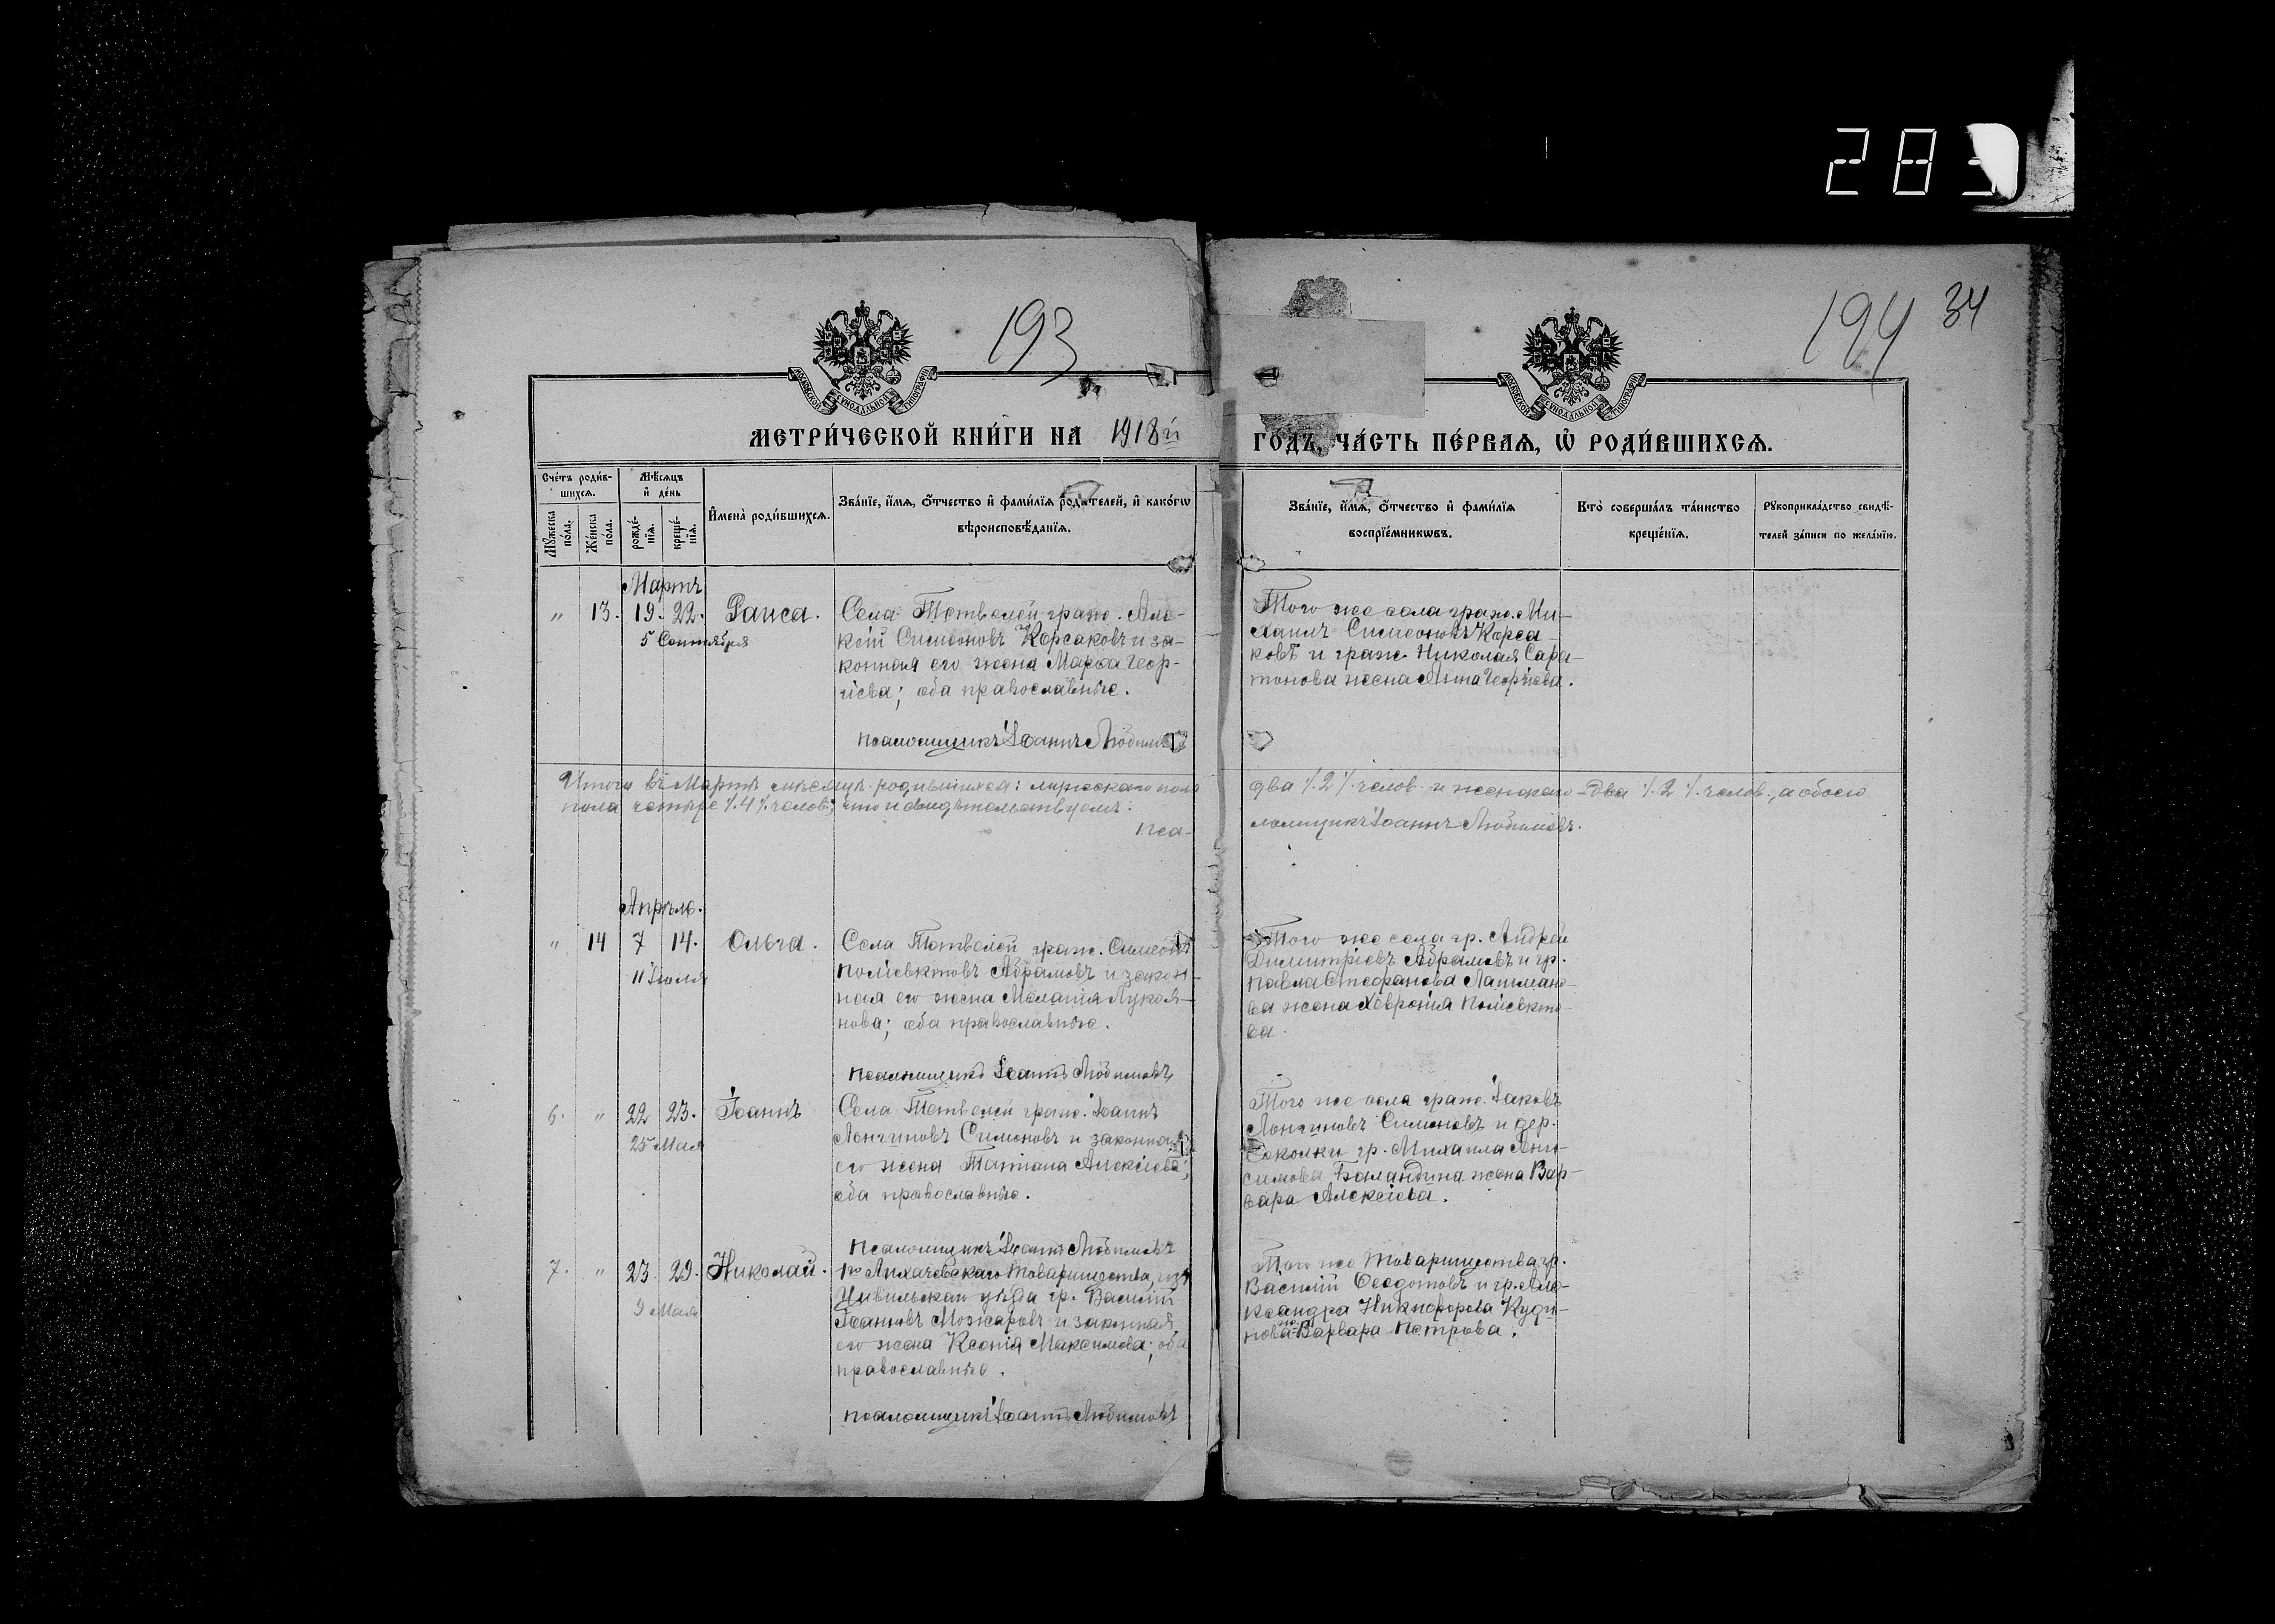 283
193
194 34
МОСКОВСКОЙ СѴНОДАЛЬНОЙ ТИПОГРАФІИ
МОСКОВСКОЙ СѴНОДАЛЬНОЙ ТИПОГРАФІИ
МЕТРИ́ЧЕСКОЙ КНИ́ГИ НА 1918й ГО́ДЪ, ЧА́СТЬ ПЕ́РВАЯ, Ѡ҆ РОДИ́ВШИХСЯ.
Сче́тъ роди́в-
шихся.
Мѣ́сяцъ
и҆ де́нь
Мꙋ́жеска по́ла.
Же́нска по́ла.
рожде́-
нїя.
креще́-
нїя.
И҆мена̀ роди́вшихся.
Зва́нїе, и҆́мя, ѻ҆́тчество и҆ фами́лїя роди́телей, и҆ како́гѡ
вѣроисповѣ́данїя.
Зва́нїе, и҆́мя, ѻ҆́тчество и҆ фами́лїя
воспрїе́мникѡвъ.
Кто̀ соверша́лъ та́инство
креще́нїя.
Рꙋкоприкла́дство свидѣ́-
телей за́писи по жела́нїю.
Мартъ
" 13. 19. 22. Раиса.
5 Сентября
Села Тетвелей граж. Але-
ксій Симеоновъ Корсаковъ и за-
конная его жена Марѳа Геор-
гіева; оба православные.
псаломщикъ Іоаннъ Любимовъ
Того же села граж. Ми-
хаилъ Симеоновъ Корса-
ковъ и граж. Николая Сара-
тонова жена Анна Георгіева.
Итого въ Мартѣ мѣсяцѣ родившихся: мужескаго пола два /. 2 /. челов. и женскаго – два /. 2 /. челов., а обоего
пола четыре /. 4 /. челов., что и свидѣтельствуемъ:
Пса-
ломщикъ Іоаннъ Любимовъ.
Апрѣль.
" 14 7 14. Ольга.
11 Іюля
Села Тетвелей граж. Симеонъ
Поліевктовъ Абрамовъ и закон-
ная его жена Меланія Лукоя-
нова; оба православные.
псаломщикъ Іоаннъ Любимовъ
Того же села гр. Андрей
Димитріевъ Абрамовъ и гр.
Павла Стефанова Лашмано-
ва жена Хеврония Поліевкто-
ва.
6. " 22 23. Іоаннъ
25 Мая
Села Тетвелей граж. Іоаннъ
Лонгиновъ Симоновъ и законная
его жена Татіана Алексіева;
оба православные.
Псаломщикъ Іоаннъ Любимовъ
Того же села граж. Іаковъ
Лонгиновъ Симоновъ и дер.
Соколки гр. Михаила Ани-
симова Баландина жена Вар-
вара Алексіева.
7. " 23 29. Николай.
9 Мая
1го Лихачевскаго товарищества, изъ
Цивильскаго уѣзда гр. Василій
Іоанновъ Можаровъ и законная
его жена Ксенія Максимова; оба
православные.
псаломщикъ Іоаннъ Любимовъ
Того же товарищества гр.
Василій Ѳеодотовъ и гр. Але-
ксандра Никифорова Куди-
нова Варвара Петрова.